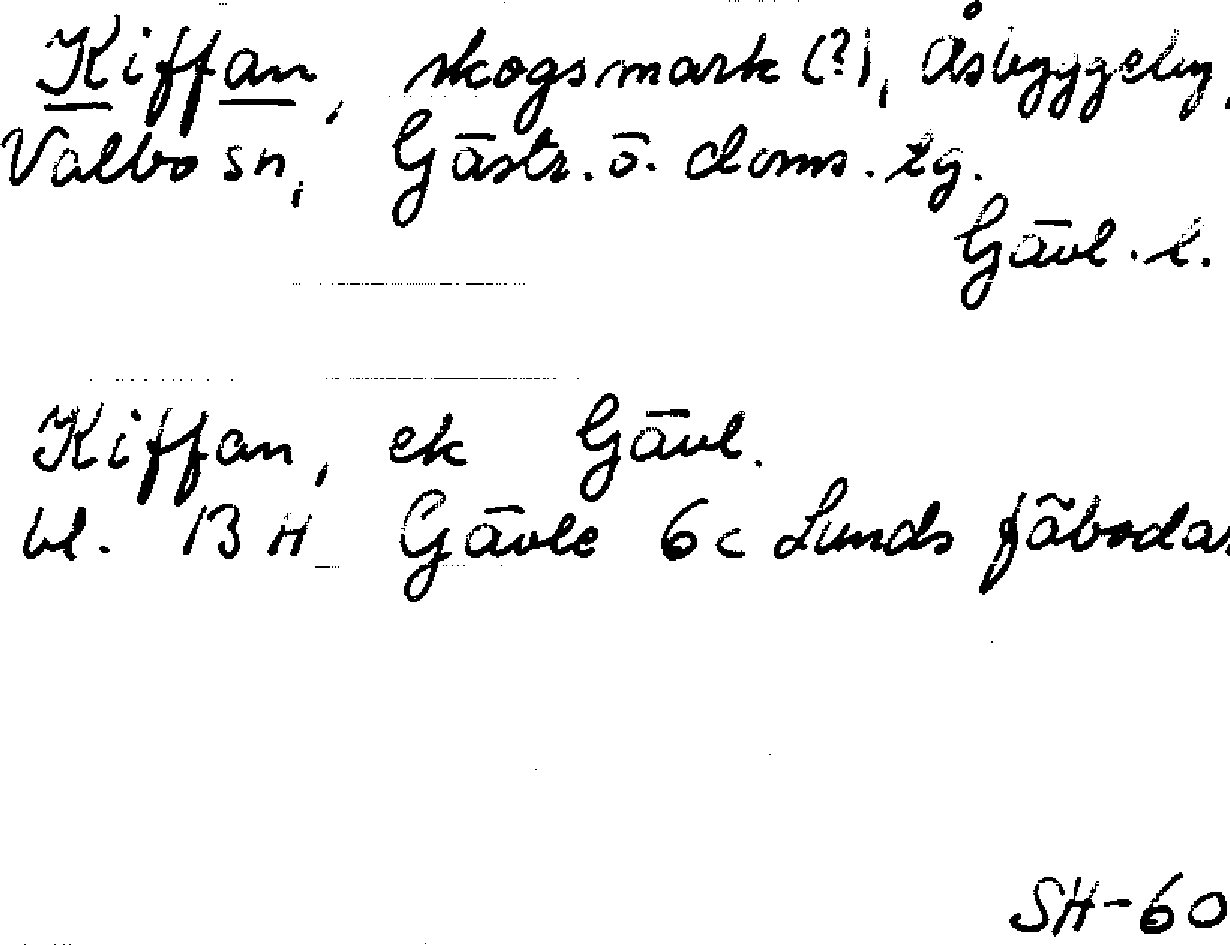 Kiffan, skogsmark (?), Åsbyggeby,
Valbo sn, Gästr. ö. doms. tg.
Gävl. l.
Kiffan, ek Gävl.
bl. 13 H Gävle 6c Lunds fäbodar
SH-60